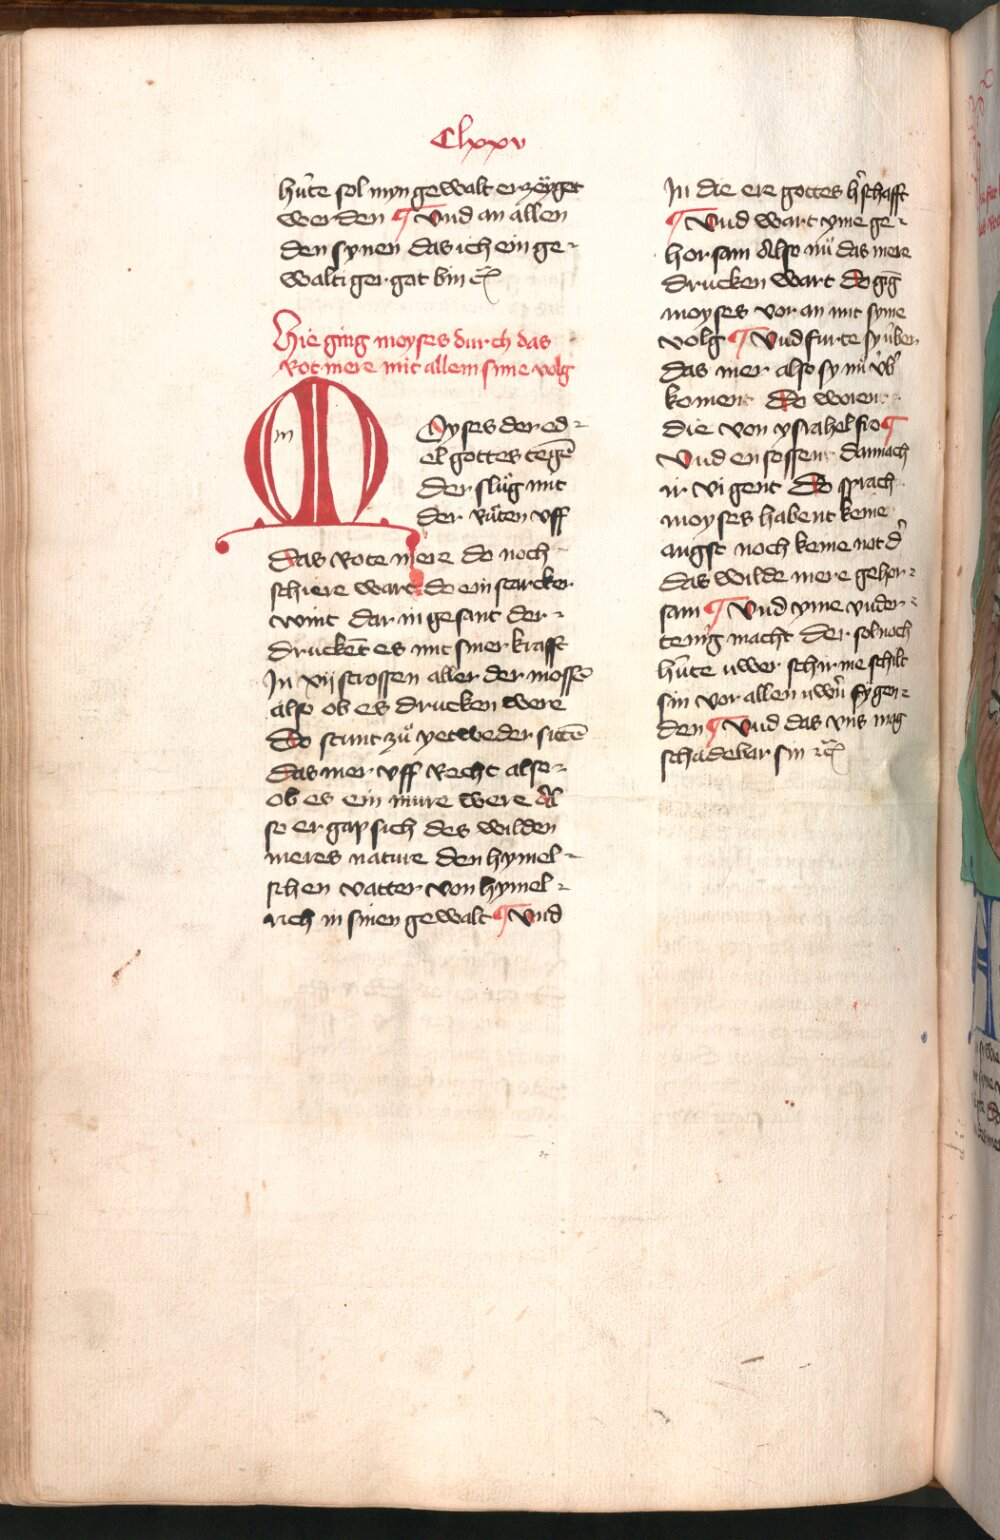 Clxxv
hüte sol myn gewalt erzöyget
werden ¶ Vnd an allen
den synen das ich ein ge-
waltiger got bin ꝛc
Hie ging moyses durch das
Rot mere mit allem sime volg
Moyses der ed-
el gottes tegē
der slůg mit
der Růten vff
das Rote mere do noch
schiere wart do ein starcker
wint dar in gesant der
druckēt es mit siner krafft
In xij strossen aller der mossē
also ob es drucken were
Do stunt zů yetweder sittē
das mer vff Recht alse
ob es ein mure were Al
so ergap sich des wilden
meres nature den hymel-
schen vatter von hymel-
rich in sinen gewalt ¶ Vnd
In die ere gottes h̓schafft
¶ Vnd wart yme ge-
horsam Also nů das mere
drucken wart do gīg
moyses vor an mit syme
volg ¶ Vnd furte sy über
das mer also sy nů üb̓
koment Do worent
die von ysrahel fro ¶
Vnd ensossent dannach
ir vigent Do sprach
moyses habent keine
angst noch keine not d̓
das wilde mere gehor-
sam ¶ Vnd yme vnder-
tenig macht der sol noch
hüte uwer schirme schilt
sin vor allen uwn̓ fygen-
den ¶ Vnd das vns mag
schadebar sin ꝛc